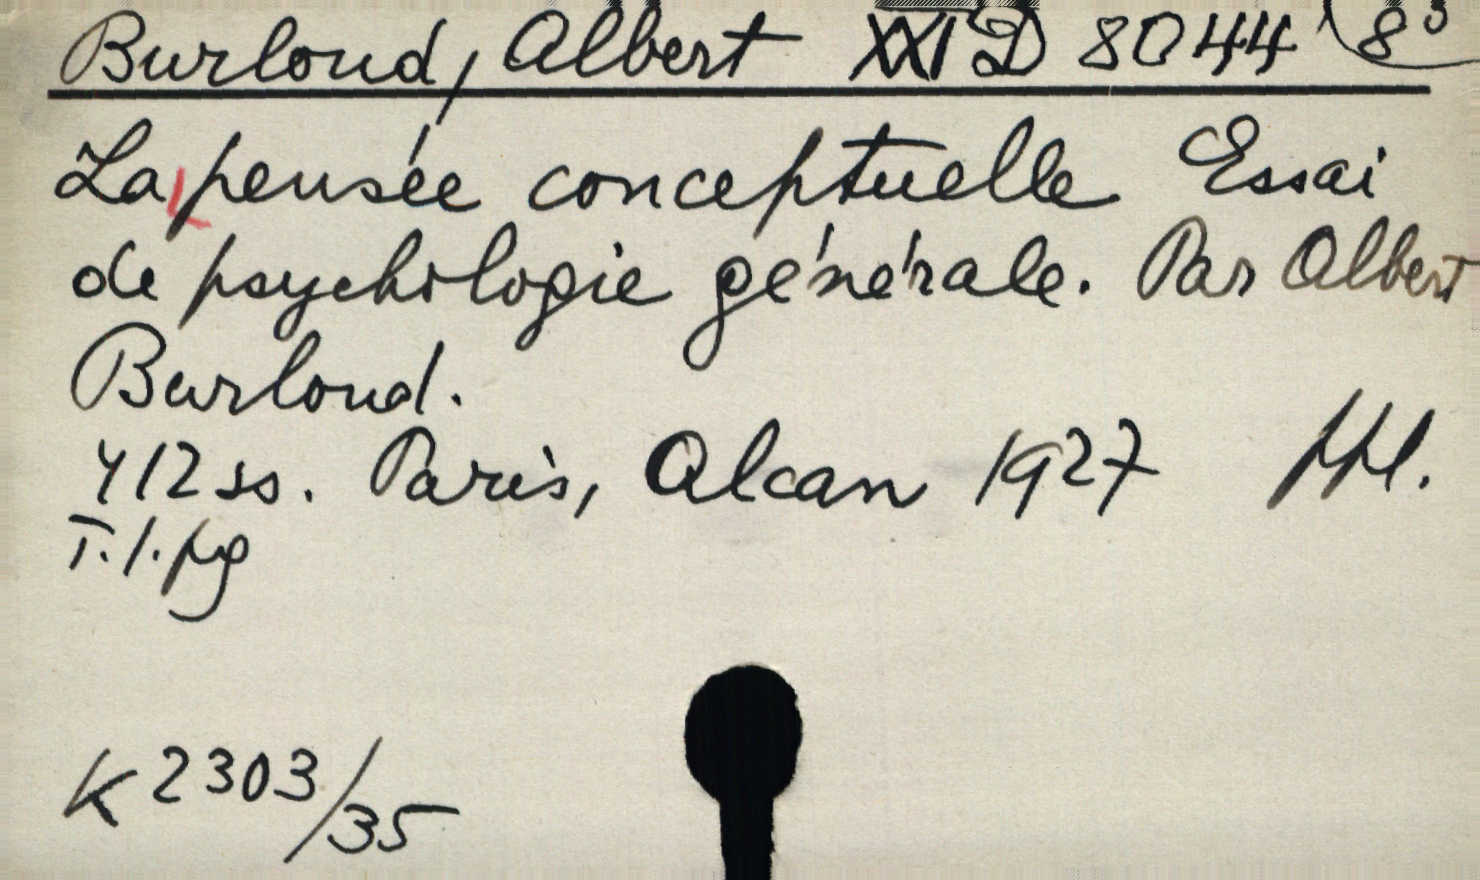 Burloud, Albert XXI D 8044 8°
La pensée conceptuelle Essai
de psychologie générale. Par Albert
Burloud.
412 ss. Paris, Alcan 1927 ppl.
T.1.pg
K 2303/35